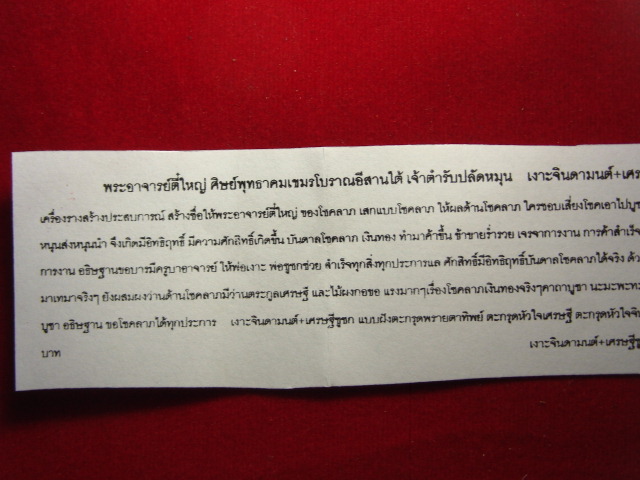 พระอาจารย์ตี๋ใหญ่ ศิษย์พุทธาคมเขมรโบราณอีสานใต้ เจ้าตำรับปลัดหมุน เงาะจินดามนต์+เศร
เครื่องรางสร้างประสบการณ์ สร้างชื่อให้พระอาจารย์ตี๋ใหญ่ ของโชคลาภ เสกแบบโชคลาภ ให้ผลด้านโชคลาภ ใครชอบเสี่ยงโชคเอาไปบูช
หนุนส่งหนุนนำ จึงเกิดมีอิทธิฤทธิ์ มีความศักสิทธิ์เกิดขึ้น บันดาลโชคลาภ เงินทอง ทำมาค้าขึ้น ช้าขายร่ำรวย เจรจาการงาน การค้าสำเร็จ
การงาน อธิษฐานขอบารมีครูบาอาจารย์ ให้พ่อเงาะ พ่อชูชกช่วย สำเร็จทุกสิ่งทุกประการแล ศักสิทธิ์มีอิทธิฤทธิ์บันดาลโชคลาภได้จริง ด้ว
มาเทมาจริงๆ ยังผสมผงว่านด้านโชคลาภมีว่านตระกูลเศรษฐี และไม้ผงกอขอ แรงมากๆเรื่องโชคลาภเงินทองจริงๆคาถาบูชา นะมะพะท
บูชา อธิษฐาน ขอโชคลาภได้ทุกประการ เงาะจินดามนต์+เศรษฐีชูชก แบบฝังตะกรุดพรายตาทิพย์ ตะกรุดหัวใจเศรษฐี ตะกรุดหัวใจจิน
บาท เงาะจินดามนต์+เศรษฐีชู